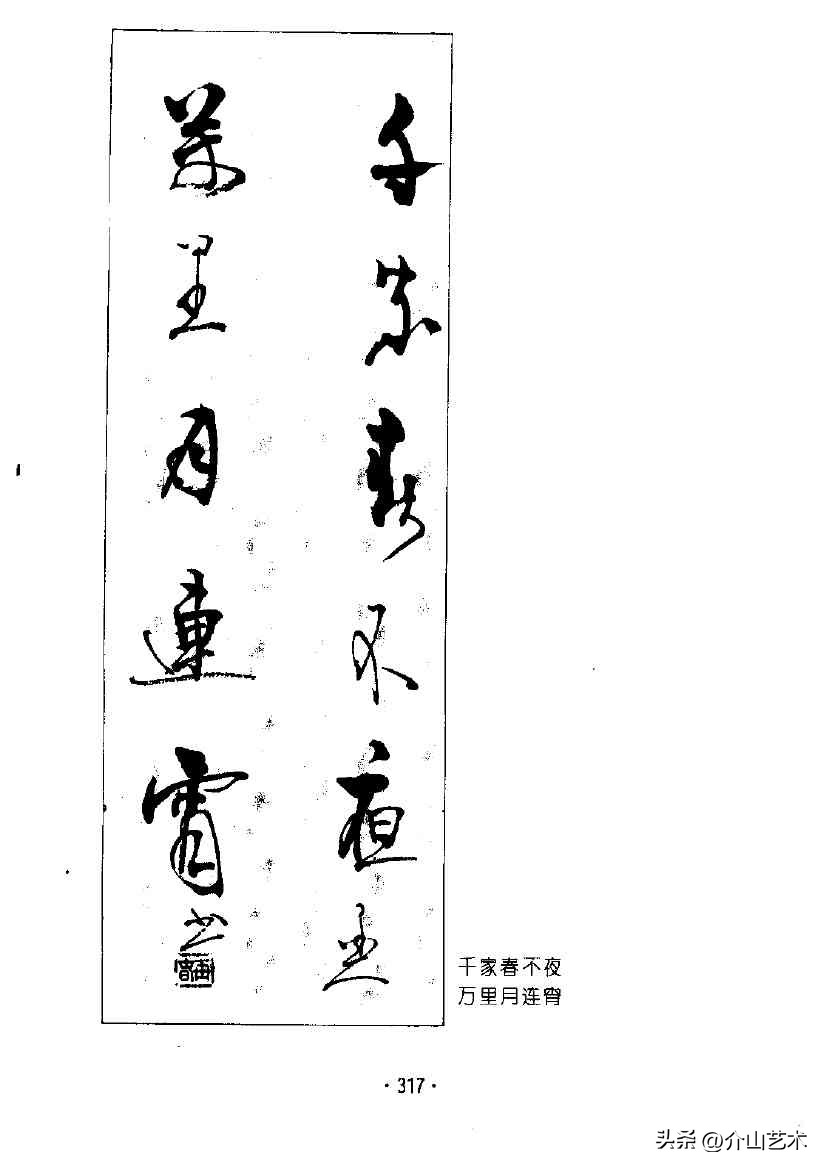 千家春不夜
萬里月連宵
千家春不夜
万里月连宵
·317·
头条 @介山艺术